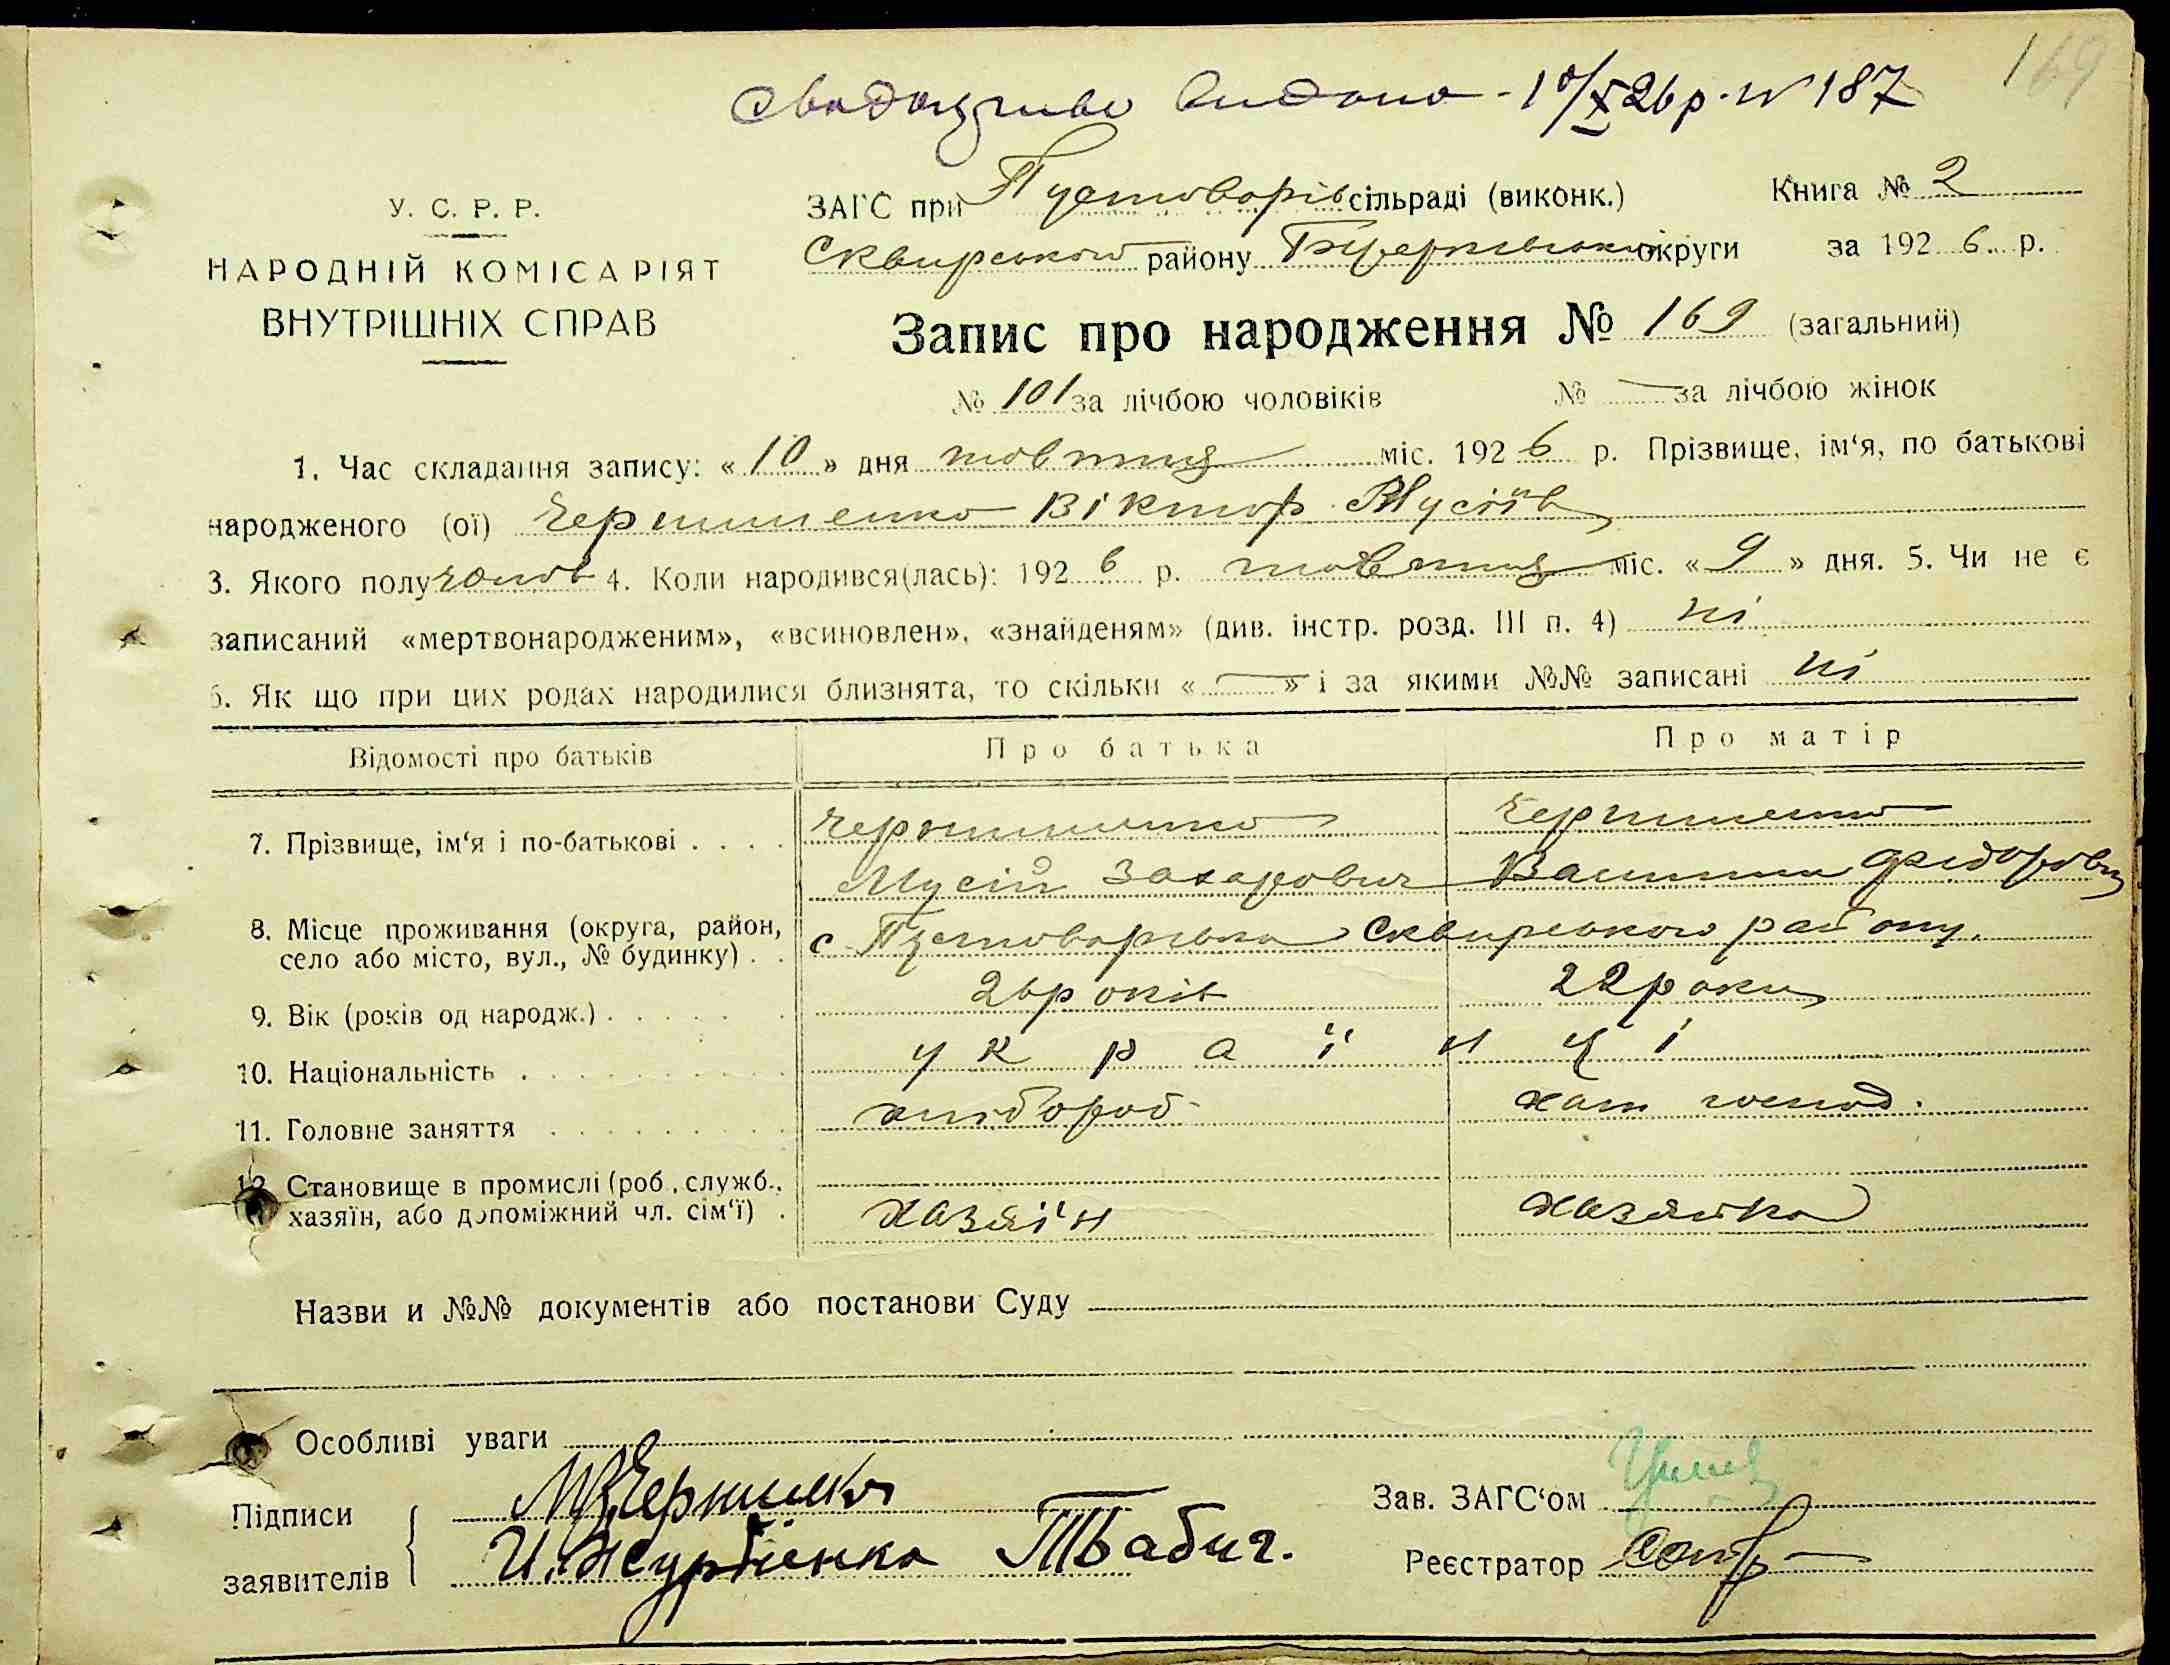 169
Свадоцтво видано - 10/X 26 р. N 187
У. С. Р. Р.
НАРОДНІЙ КОМІСАРІЯТ
ВНУТРІШНІХ СПРАВ
ЗАГС при Пустоварів сільраді (виконк.) Книга № 2
Сквирського району Б Церківської округи за 1926 р.
Запис про народження № 169 (загальний)
№ 101 за лічбою чоловіків № — за лічбою жінок
1. Час складання запису: « 10 » дня жовтня міс. 1926 р. Прізвище, ім‘я, по батькові
народженого (ої) Віктор Мусіїв
3. Якого полу чолов 4. Коли народився(лась): 1926 р. жовтня міс. « 9 » дня. 5. Чи не є
записаний «мертвонародженим», «всиновлен», «знайденям» (див. інстр. розд. III п. 4) ні
6. Як що при цих родах народилися близнята, то скільки « — » і за якими №№ записані ні
Відомості про батьків Про батька Про матір
7. Прізвище, ім‘я і по-батькові . . . .
Мусій Захарович Федоровн
8. Місце проживання (округа, район,
село або місто, вул., № будинку) . . с Пустоварівка Сквирського району.
9. Вік (років од народж.) . . . . . . 26 років 22 роки
10. Національність . . . . . . . . . українці
11. Головне заняття . . . . . . . . хлібороб хатн господ.
12. Становище в промислі (роб., служб.,
хазяїн, або допоміжний чл. сім‘ї) . хазяїн хазяйка
Назви и №№ документів або постанови Суду
Особливі уваги
Підписи
заявителів И. Журбенко Т Бабич.
Зав. ЗАГС‘ом
Реєстратор